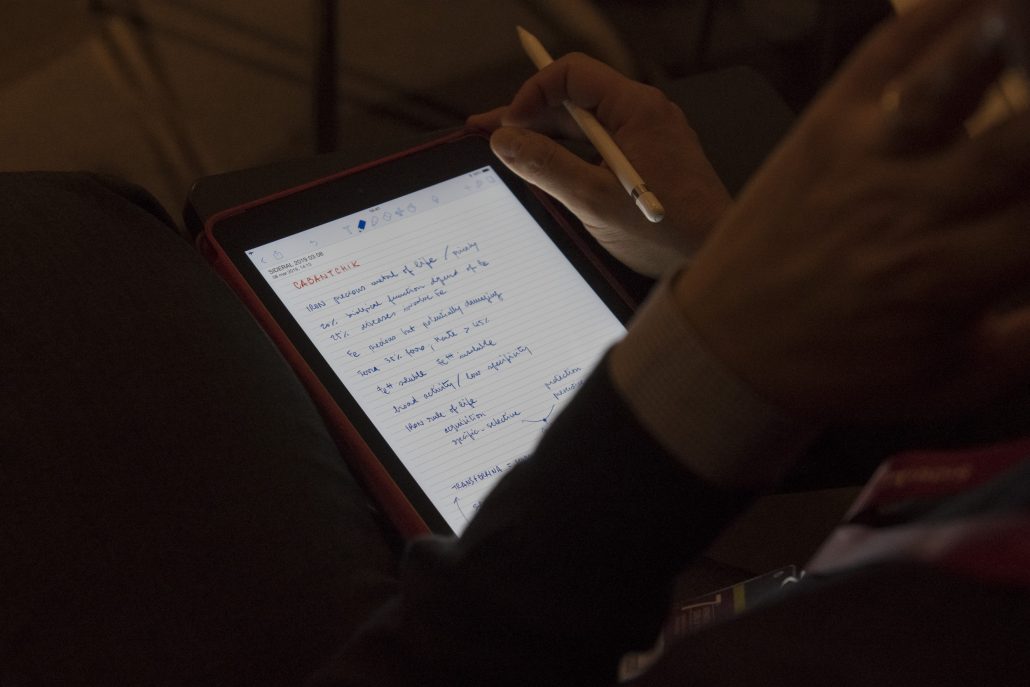 SIDERAL 2019.03.08
CABANTCHIK
IRON precious metal of life / privacy
20% biological function depend of Fe
25% diseases involve Fe
Fe precious but potentially damaging
Terra 35% ferro, Marte > 45%
Fe++ soluble Fe+++ insoluble
broad activity / low specificity
IRON rule of life
acquisition
specific - selective
protection
TRANSFERRINA =